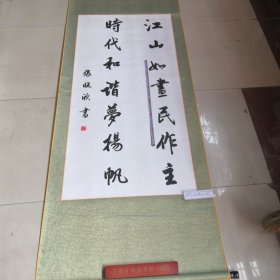 江山如畫民作主
時代和諧夢揚帆
書